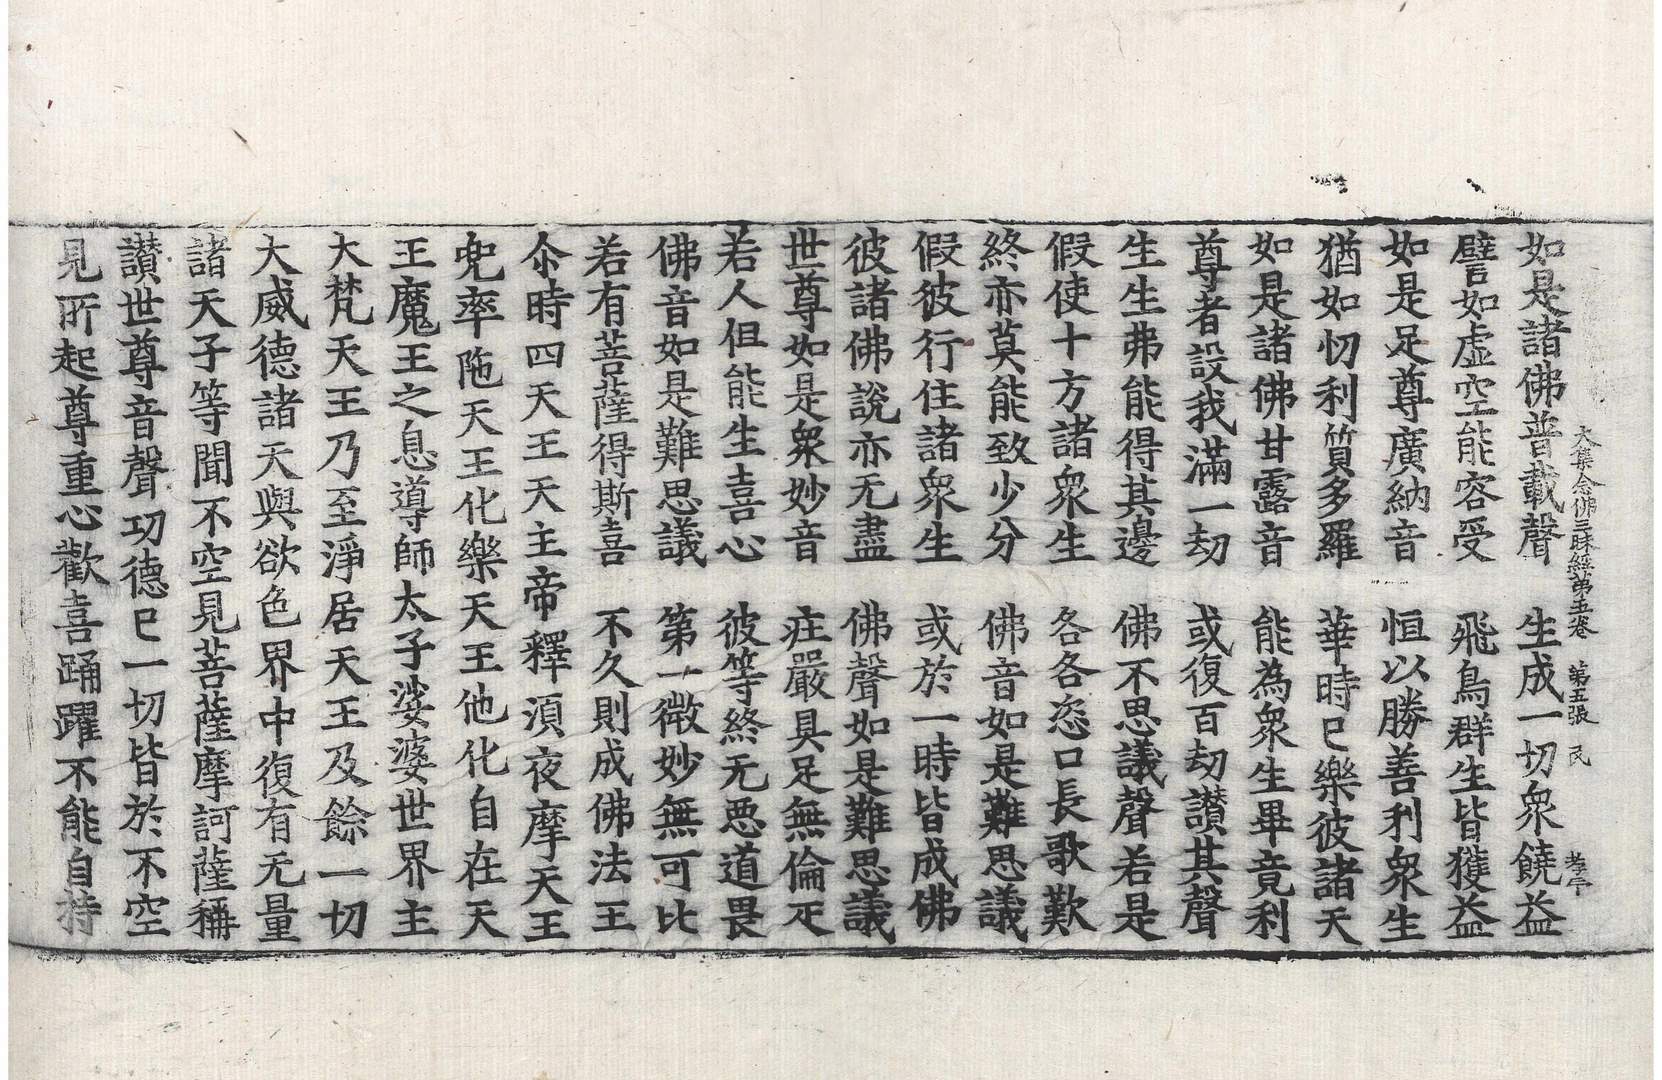 大集念佛三昧經第五卷　第五張　民　孝序
如是諸佛普載聲　生成一切衆饒益
譬如虛空能容受　飛鳥群生皆獲益
如是足尊廣納音　恒以勝善利衆生
猶如忉利質多羅　華時巳樂彼諸天
如是諸佛甘露音　能為衆生畢竟利
尊者設我滿一劫　或復百劫讃其聲
生生弗能得其邊　佛不思議聲若是
假使十方諸衆生　各各恣口長歌歎
終亦莫能致少分　佛音如是難思議
假彼行住諸衆生　或於一時皆成佛
彼諸佛說亦无盡　佛聲如是難思議
世尊如是衆妙音　庄嚴具足無倫疋
若人但能生喜心　彼等終无悪道畏
佛音如是難思議　第一微妙無可比
若有菩薩得斯喜　不久則成佛法王
尒時四天王天主帝釋湏夜摩天王
兜率陁天王化樂天王他化自在天
王魔王之息導師太子娑婆世界主
大梵天王乃至淨居天王及餘一切
大威德諸天與欲色界中復有无量
諸天子等聞不空見菩薩摩訶薩稱
讃世尊音聲功德巳一切皆於不空
見所起尊重心歡喜踊躍不能自持